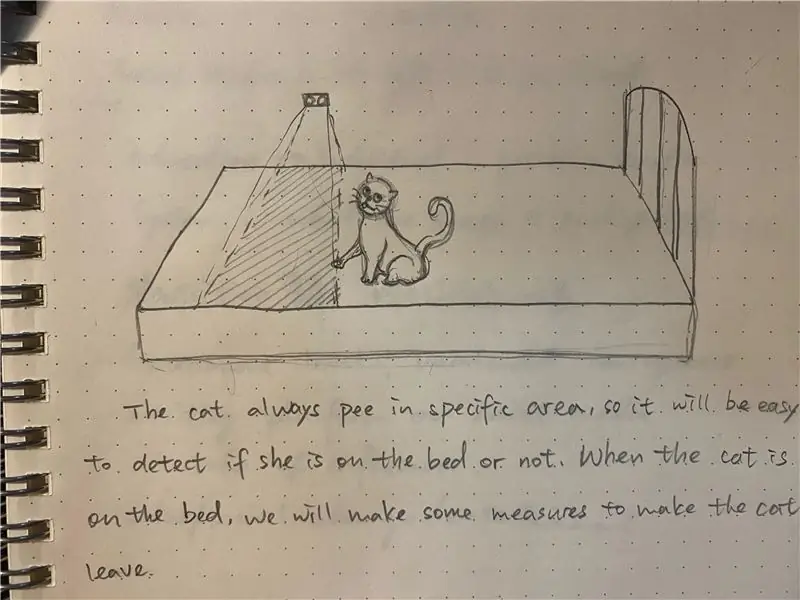 The cat always pee in specific area, so it will be easy
to detect if she is on the bed or not. When the cat is
on the bed, we will make some measures to make the cat
leave.